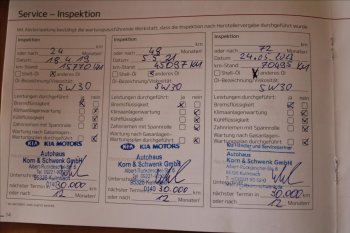 Service – Inspektion
Mit Abstempelung bestätigt die wartungsausführende Werkstatt, dass die Inspektion nach Herstellervorgabe durchgeführt wurde.
Inspektion
24
oder nach Monaten
Datum 18.4.19
km-Stand 15770 KM
Shell-Öl anderes Öl
Öl-Bezeichnung/Viskosität
5W30
Leistungen durchgeführt: ja nein
Bremsflüssigkeit
Klimaanlagenwartung
Kühlflüssigkeit
Zahnriemen mit Spannrolle
Wartung von Gasanlagen
KIA KIA MOTORS
Autohaus
Korn & Schwenk GmbH
95326 Kulmbach
Unterschrift
nächster Termin 30.000 km
oder nach 12 Monaten!
Inspektion
48
oder nach Monaten
Datum 5.5.21
km-Stand 45037 KM
Shell-Öl anderes Öl
Öl-Bezeichnung/Viskosität
5W30
Leistungen durchgeführt: ja nein
Bremsflüssigkeit
Klimaanlagenwartung
Kühlflüssigkeit
Zahnriemen mit Spannrolle
Wartung von Gasanlagen
KIA KIA MOTORS
Autohaus
Korn & Schwenk GmbH
95326 Kulmbach
nächster Termin 30.000 km
oder nach 12 Monaten!
Inspektion
72
oder nach Monaten
Datum 24.05.2023
km-Stand 70495 KM
Shell-Öl anderes Öl
Öl-Bezeichnung/Viskosität
5W30
Leistungen durchgeführt: ja nein
Bremsflüssigkeit
Klimaanlagenwartung
Kühlflüssigkeit
Zahnriemen mit Spannrolle
Autohaus
Korn & Schwenk GmbH
95326 Kulmbach
nächster Termin 30.000 km
oder nach 12 Monaten!
14